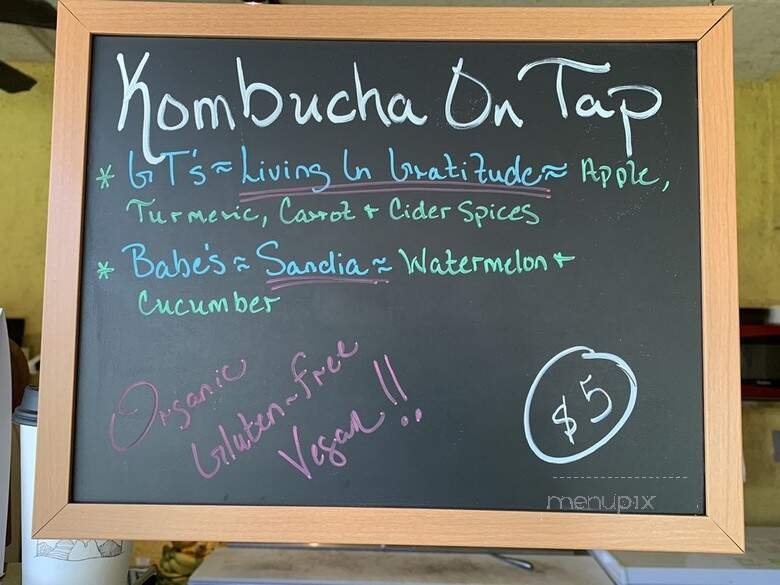 Kombucha On Tap
* GT's ≈ Living In Gratitude ≈ Apple,
Turmeric, Carrot + Cider Spices
* Babe's ≈ Sandia ≈ Watermelon +
Cucumber
Organic
Gluten-Free
Vegan!!
$5
menupix